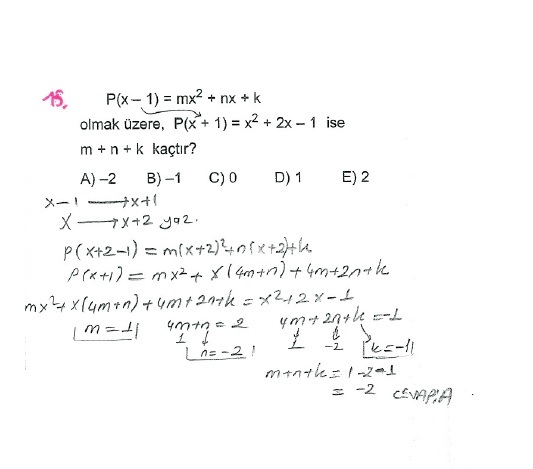 15. P(x – 1) = mx² + nx + k
olmak üzere, P(x + 1) = x² + 2x – 1 ise
m + n + k kaçtır?
A) –2 B) –1 C) 0 D) 1 E) 2
x-1 → x+1
x → x+2 yaz.
P(x+2-1) = m(x+2)²+n(x+2)+k
P(x+1) = mx²+ x(4m+n)+4m+2n+k
mx²+x(4m+n)+4m+2n+k = x²+2x-1
m=1 4m+n=2 4m+2n+k=-1
1 1 -2 k=-1
n=-2
m+n+k = 1-2-1
= -2 CEVAP:A